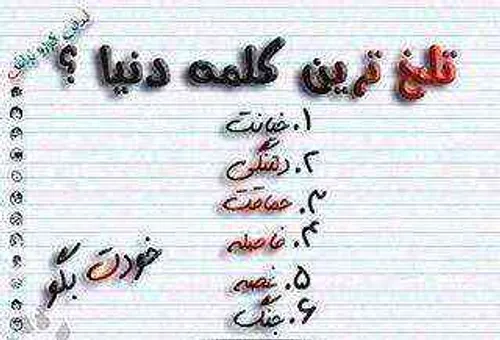 تلخ ترین کلمه دنیا ؟
۱. خیانت
۲. دلتنگی
۳. حماقت
۴. فاصله
۵.
۶. جنگ
خودت بگو